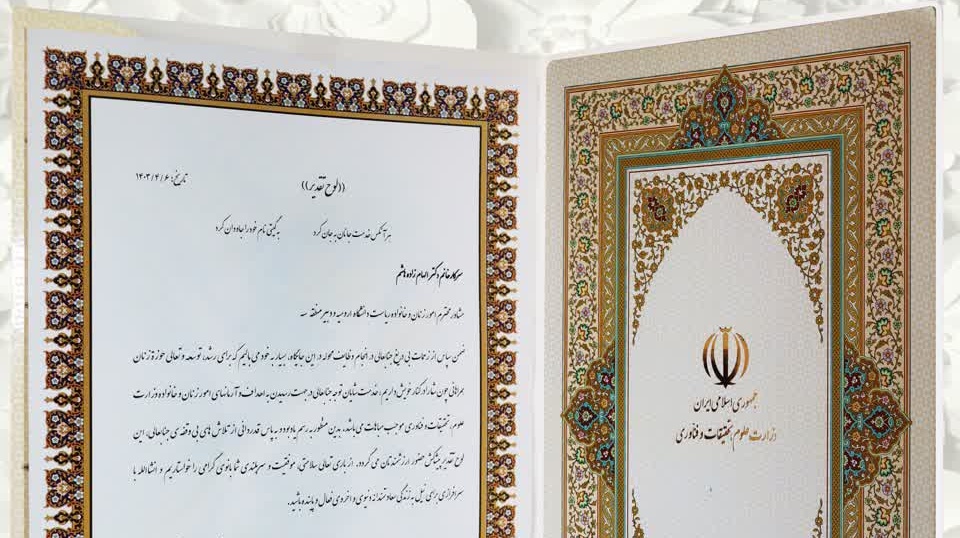 تاریخ: ۱۴۰۳/۴/۶
((لوح تقدیر))
هر آنکس خدمت جانان به جان کرد به گیتی نام خود را جاودان کرد
سرکار خانم دکتر الهام زاده هاشم
مشاور محترم امور زنان و خانواده ریاست دانشگاه ارومیه و دبیر منطقه سه
ضمن سپاس از زحمات بی دریغ جنابعالی در انجام وظایف محوله در این جایگاه، بسیار به خود می بالیم که برای رشد، توسعه و تعالی حوزه زنان
همراهانی چون شما را در کنار خویش داریم، خدمت شایان توجه جنابعالی در جهت رسیدن به اهداف و آرمانهای امور زنان و خانواده وزارت
علوم، تحقیقات و فناوری موجب مباهات می باشد، بدین منظور به رسم یادبود و به پاس قدردانی از تلاش های بی وقفه ی جنابعالی، این
لوح تقدیر پیشکش حضور ارزشمندتان می گردد. از باری تعالی سلامتی، موفقیت و سربلندی شما بانوی گرامی را خواستاریم و انشاالله با
سرافرازی برای نیل به زندگی سعادتمندانه دنیوی و اخروی فعال و پاینده باشید.
جمهوری اسلامی ایران
وزارت علوم، تحقیقات و فناوری